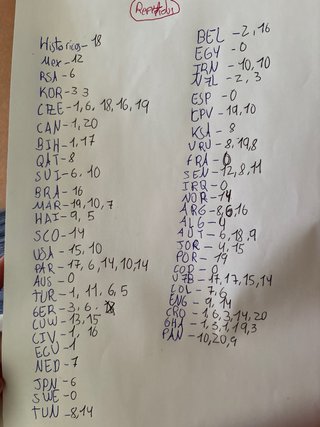 Repetidos
Historicos - 18
Mex - 12
RSA - 6
KOR - 3 3
CZE - 1, 6, 18, 16, 19
CAN - 1, 20
BIH - 1, 17
QAT - 8
SUI - 6, 10
BRA - 16
MAR - 19, 10, 7
HAI - 9, 5
SCO - 14
USA - 15, 10
PAR - 17, 6, 14, 10, 14
AUS - 0
TUR - 1, 11, 6, 5
GER - 3, 6,
CUW - 13, 15
CIV - 1, 16
ECU - 1
NED - 7
JPN - 6
SWE - 0
TUN - 8, 14
BEL - 2, 16
EGY - 0
IRN - 10, 10
NZL - 2, 3
ESP - 0
CPV - 19, 10
KSA - 8
URU - 8, 19, 8
FRA - 0
SEN - 12, 8, 11
IRQ - 0
NOR - 14
ARG - 8, 6, 16
ALG - 4
AUT - 6, 18, 9
JOR - 4, 15
POR - 19
COD - 0
UZB - 17, 17, 15, 14
COL - 7, 6
ENG - 9, 14
CRO - 1, 6, 3, 14, 20
GHA - 1, 3, 1, 19, 3
PAN - 10, 20, 9